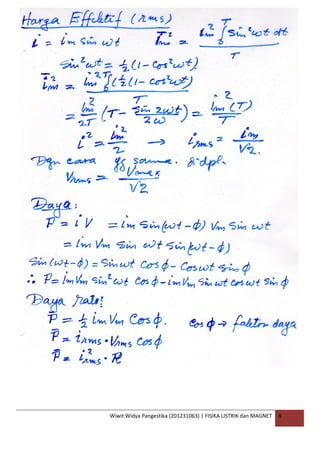 Harga Effektif (rms)
i = im Sin ωt   i̅m² = im² ∫₀ᵀ Sin²ωt dt / T
Sin²ωt = ½(1 - Cos²ωt)
i̅m² = im² ∫₀ᵀ (½(1 - Cos²ωt) / T
= im²/2T (T - Sin 2ωt / 2ω) = im²(T) / T
i² = im²/2 → irms = im/√2.
Dgn cara yg sama. didpl.
Vrms = Vmax/√2
Daya:
P = i V = im Sin(ωt - ϕ) Vm Sin ωt
= im Vm Sin ωt Sin(ωt - ϕ)
Sin(ωt - ϕ) = Sin ωt Cos ϕ - Cos ωt Sin ϕ
∴ P = im Vm Sin² ωt Cos ϕ - im Vm Sin ωt Cos ωt Sin ϕ
Daya rata²:
P̅ = ½ im Vm Cos ϕ.   Cos ϕ → faktor daya
P̅ = irms · Vrms Cos ϕ
P̅ = i²rms · R
Wiwit Widya Pangestika (201231063) | FISIKA LISTRIK dan MAGNET